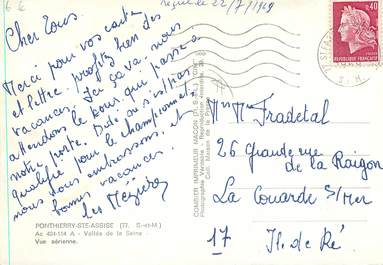 6 €
reçue le 22/7/1969
Cher tous.
Merci pour vos cartes
et lettre. profitez bien des
vacances. Ici ça va. nous
attendons le jour qui passe à
notre porte. Dédé ou s'est pas
qualifié pour le championnat
nous vous embrassons, et
bonnes vacances.
les Mézière
PONTHIERRY-STE-ASSISE (77. S.-et-M.)
Ac 404-114 A - Vallée de la Seine
Vue aérienne.
COMBIER IMPRIMEUR MACON
0,40
REPUBLIQUE FRANÇAISE
Mr Mme Fradetal
26 Grande rue
de la Raigon
La Couarde s/Mer
17 Ile de Ré